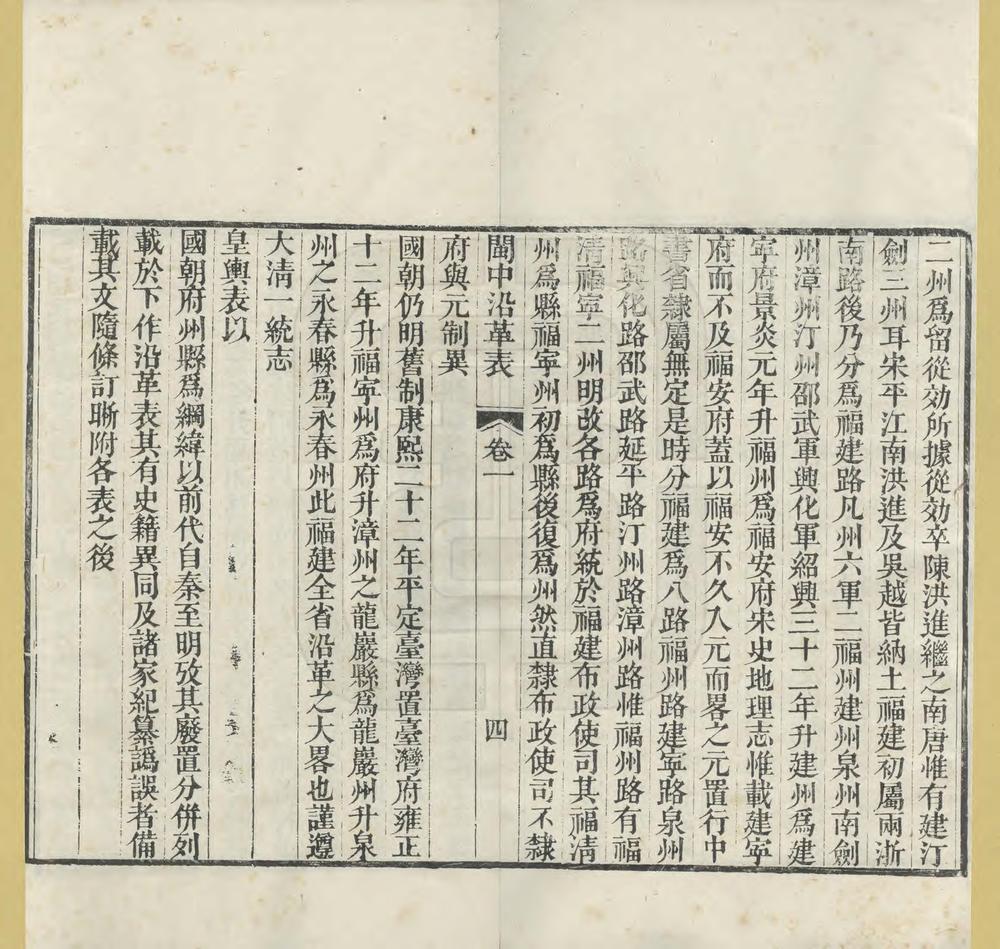 二州爲留從効所據從効卒陳洪進繼之南唐惟有建汀
劍三州耳宋平江南洪進及吳越皆納土福建初屬兩浙
南路後乃分爲福建路凡州六軍二福州建州泉州南劍
州漳州汀州邵武軍興化軍紹興三十二年升建州爲建
寧府景炎元年升福州爲福安府宋史地理志惟載建寧
府而不及福安府蓋以福安不久入元而畧之元置行中
書省隸屬無定是時分福建爲八路福州路建寧路泉州
路興化路邵武路延平路汀州路漳州路惟福州路有福
清福寧二州明改各路爲府統於福建布政使司其福清
州爲縣福寧州初爲縣後復爲州然直隸布政使司不隸
閩中沿革表 卷一 四
府與元制異
國朝仍明舊制康熙二十二年平定臺灣置臺灣府雍正
十二年升福寧州爲府升漳州之龍巖縣爲龍巖州升泉
州之永春縣爲永春州此福建全省沿革之大畧也謹遵
大清一統志
皇輿表以
國朝府州縣爲綱緯以前代自秦至明攷其廢置分併列
載於下作沿革表其有史籍異同及諸家紀纂譌誤者備
載其文隨條訂晰附各表之後